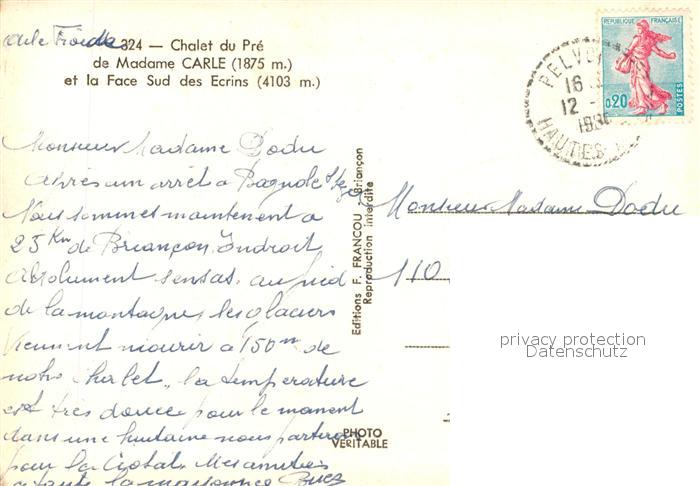 324 — Chalet du Pré
de Madame CARLE (1875 m.)
et la Face Sud des Ecrins (4103 m.)
REPUBLIQUE FRANÇAISE
0,20
POSTES
PELVO
16
12 -
19
HAUTES
Monsieur Madame Dodu
après un arrêt à Bagnole
Nous sommes maintenent a
25 Km de Briançon. Indroit
absolument sensas. au pied
de la montagne, les glaciers
viennent mourir à 150m de
notre chalet, la température
est très douce pour le moment
dans une huitaine nous partirons
pour la
la
Editions F. FRANCOU Briançon
Reproduction interdite
PHOTO
VERITABLE
Monsieur Madame Dodu
110
privacy protection
Datenschutz